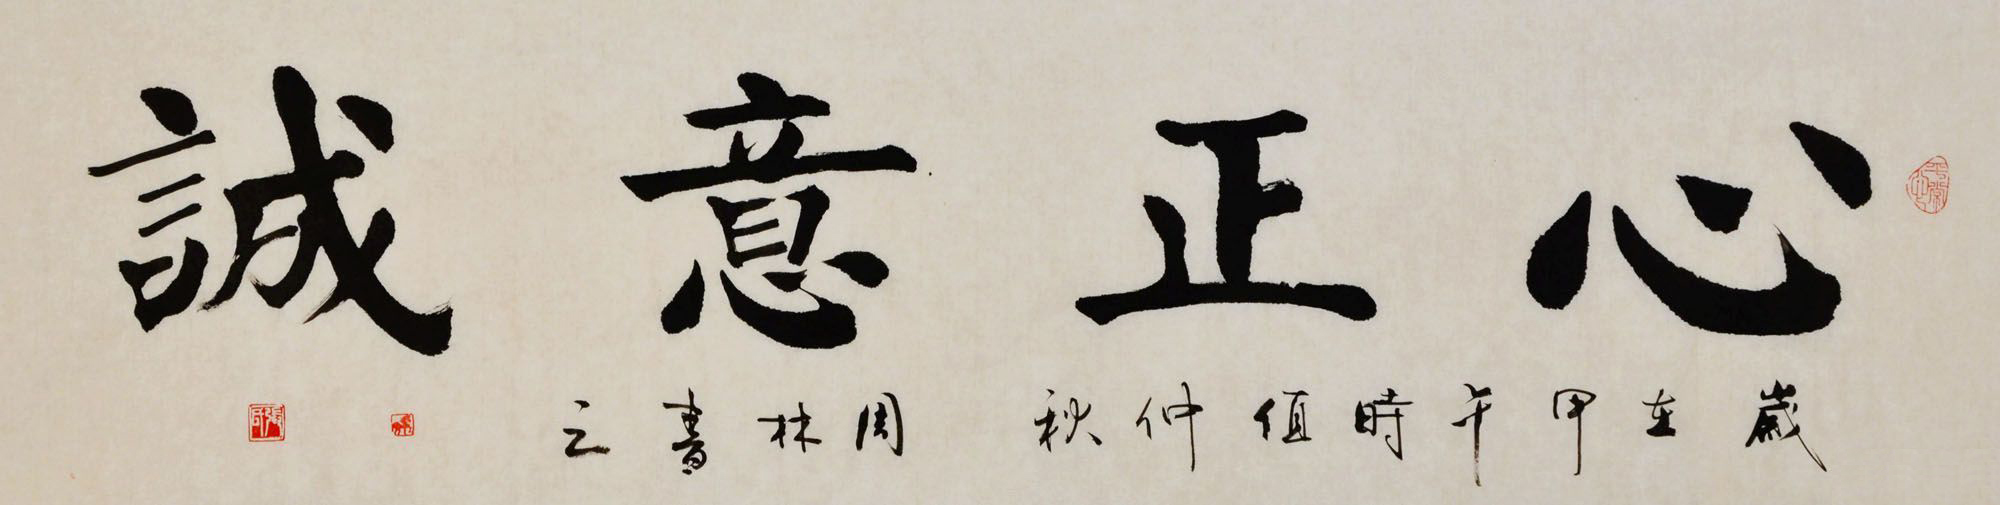 心正意誠
歲在甲午時值仲秋 周林書之